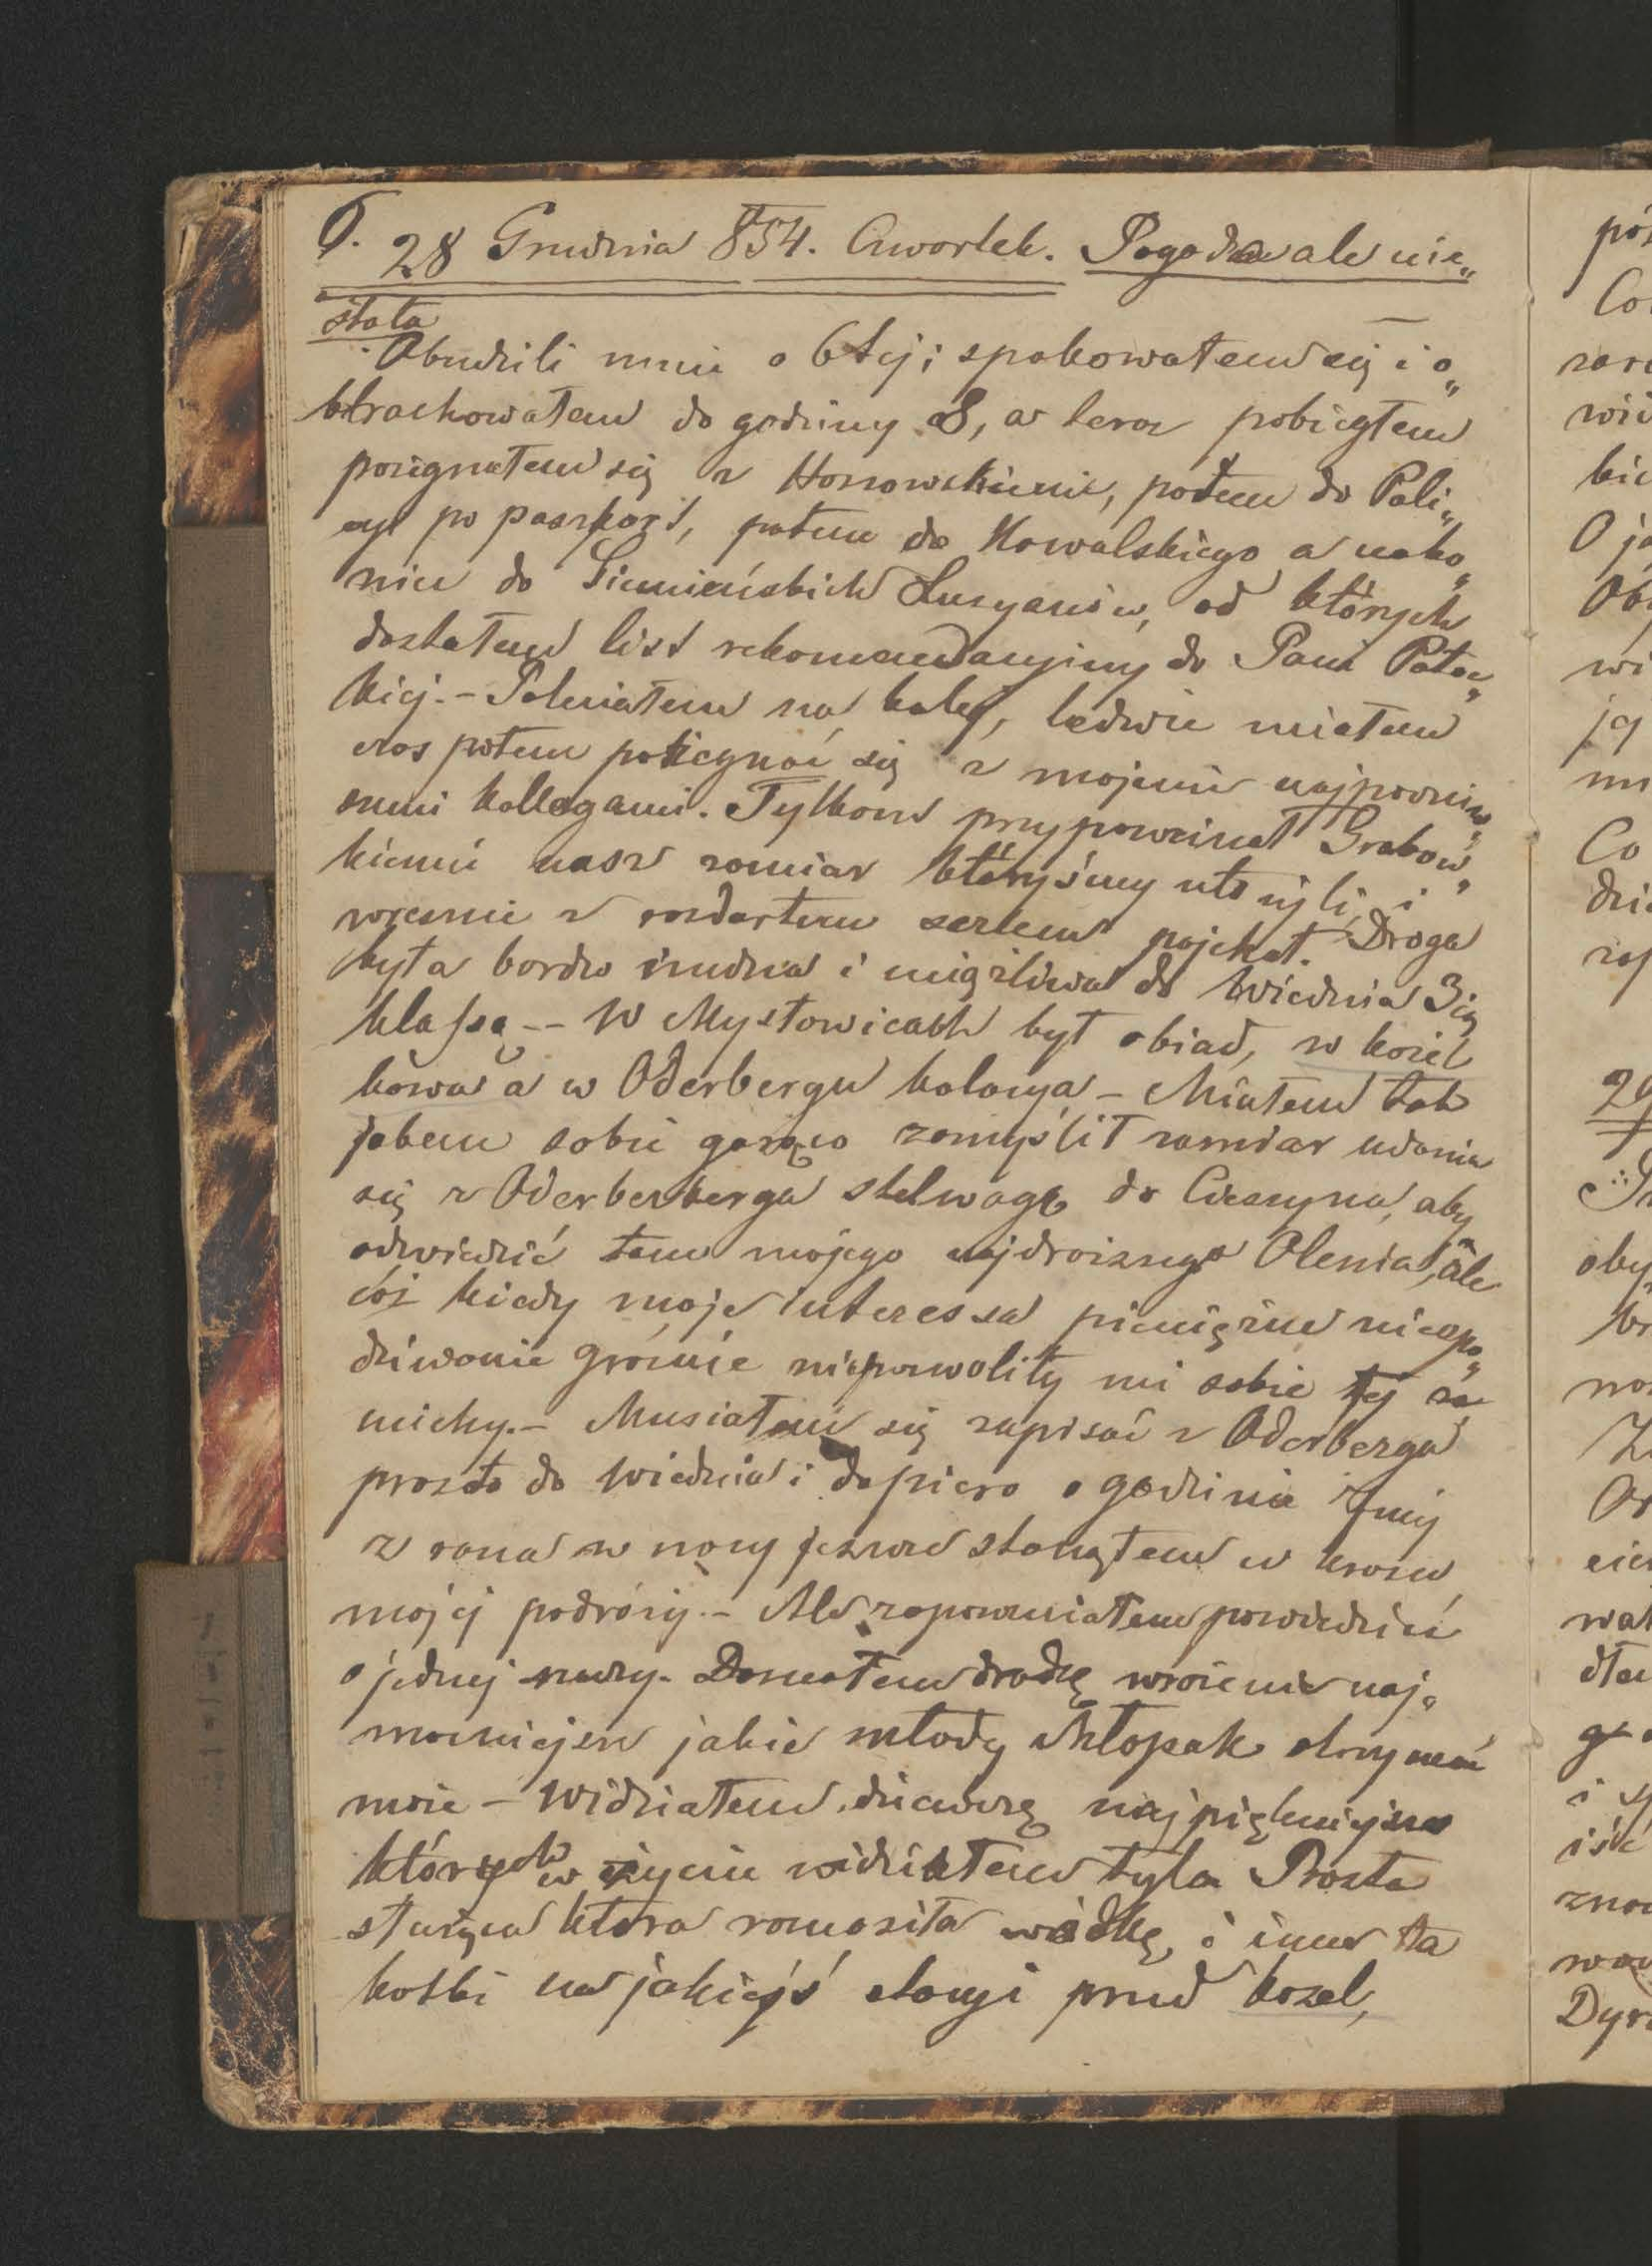 6. 28 Grudnia 854. Czwartek. Pogoda ale nie„
stała
Obudzili mnie o 6tej; spakowałem się i o„
btrachowałem do godziny 8, a teraz pobiegłem
pożegnałem się z Honowskiemi, potem do Poli„
cyi po paszport, potem do Kowalskiego a nako„
niec do Siemieńskich Lucyanów, od których
dostałem list rekomendacyjny do Pani Potoc„
kiej. – Poleciałem na kolej, ledwie miałem
czas potem pożegnać się z mojemi najpoczciw„
szemi kollegami. Tylkom przypomniał Grabow„
kiemu nasz zamiar któryśmy ułożyli, i
wreszcie z rozdartem sercem pojechał. Droga
była bardzo nudna i uciążliwa do Wiednia 3ią
klassą -- W Mysłowicach był obiad, w Koźel
kawa a w Oderbergu kolacya – Miałem tak
jakem sobie gorąco zamyślił zamiar udania
się z Oderberberga stelwagą do Cieszyna, aby
odwiedzić tam mojego najdroższego Olesia, ale
cóż kiedy moje interessa pieniężne niespo„
dziwanie groźnie niepozwoliły mi sobie tej za
michy. – Musiałem się zapisać z Oderberga
prosto do Wiednia i dopiero o godzinie 7mej
z rana w nocy jeszcze stanąłem w kresu
mojej podróży. – Ale zapomniałem powiedzieć
o jednej rzeczy. Doznałem drodzę wrażenie naj„
mocniejsze jakie młody chłopak otrzymać
może – Widziałem dziewczę najpiękniejsze
których w życiu widziałem była Prosta
służąca która roznosiła wódkę, i inne ta
kotki na jakiejś stacyi przed Kozel,
póź
Co
wi
bie
O ja
Ob
wi
ją
mi
Co
dzi
zap
29
oby
Z
wał
i
iść
znow
Dyr